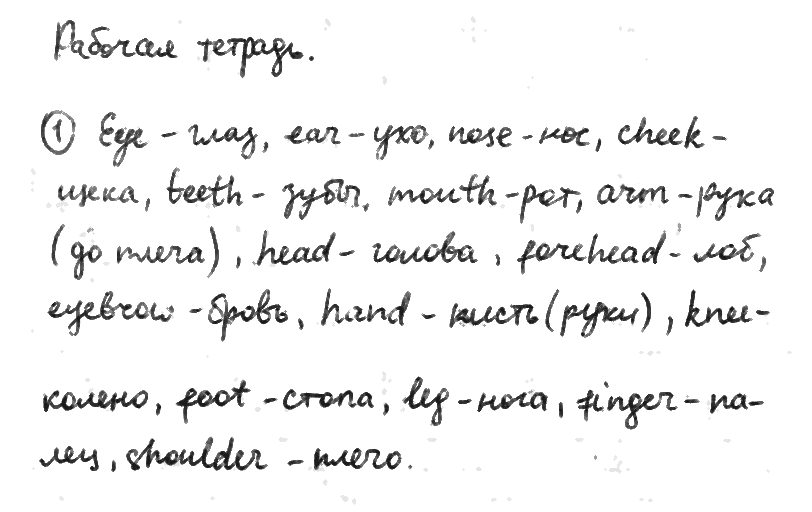 Рабочая тетрадь.
① Eye – глаз, ear – ухо, nose – нос, cheek –
щека, teeth – зубы, mouth – рот, arm – рука
(до плеча), head – голова, forehead – лоб,
eyebrow – бровь, hand – кисть (руки), knee –
колено, foot – стопа, leg – нога, finger – па-
лец, shoulder – плечо.